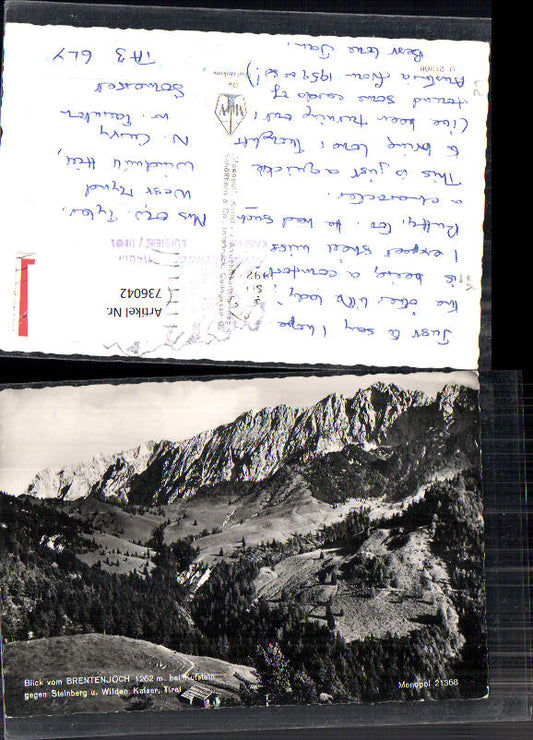 Just to say I hope
the other little lady
is being a comfort
I expect she'll miss
Puffy, too. He had such
a character.
This is just a quickie
to bring love & thoughts
(I've been turning out &
found some cards of
Austria from 1959 or so!)
Best love Jan.
Mrs
West
Windmill Hill,
N. Curry
Nr. Taunton
Somerset
TA3 6LY
KUFSTEIN / TIROL
Artikel Nr.
736042
Blick vom BRENTENJOCH 1262 m. bei Kufstein
gegen Steinberg u. Wilden Kaiser, Tirol
Monopol 21368